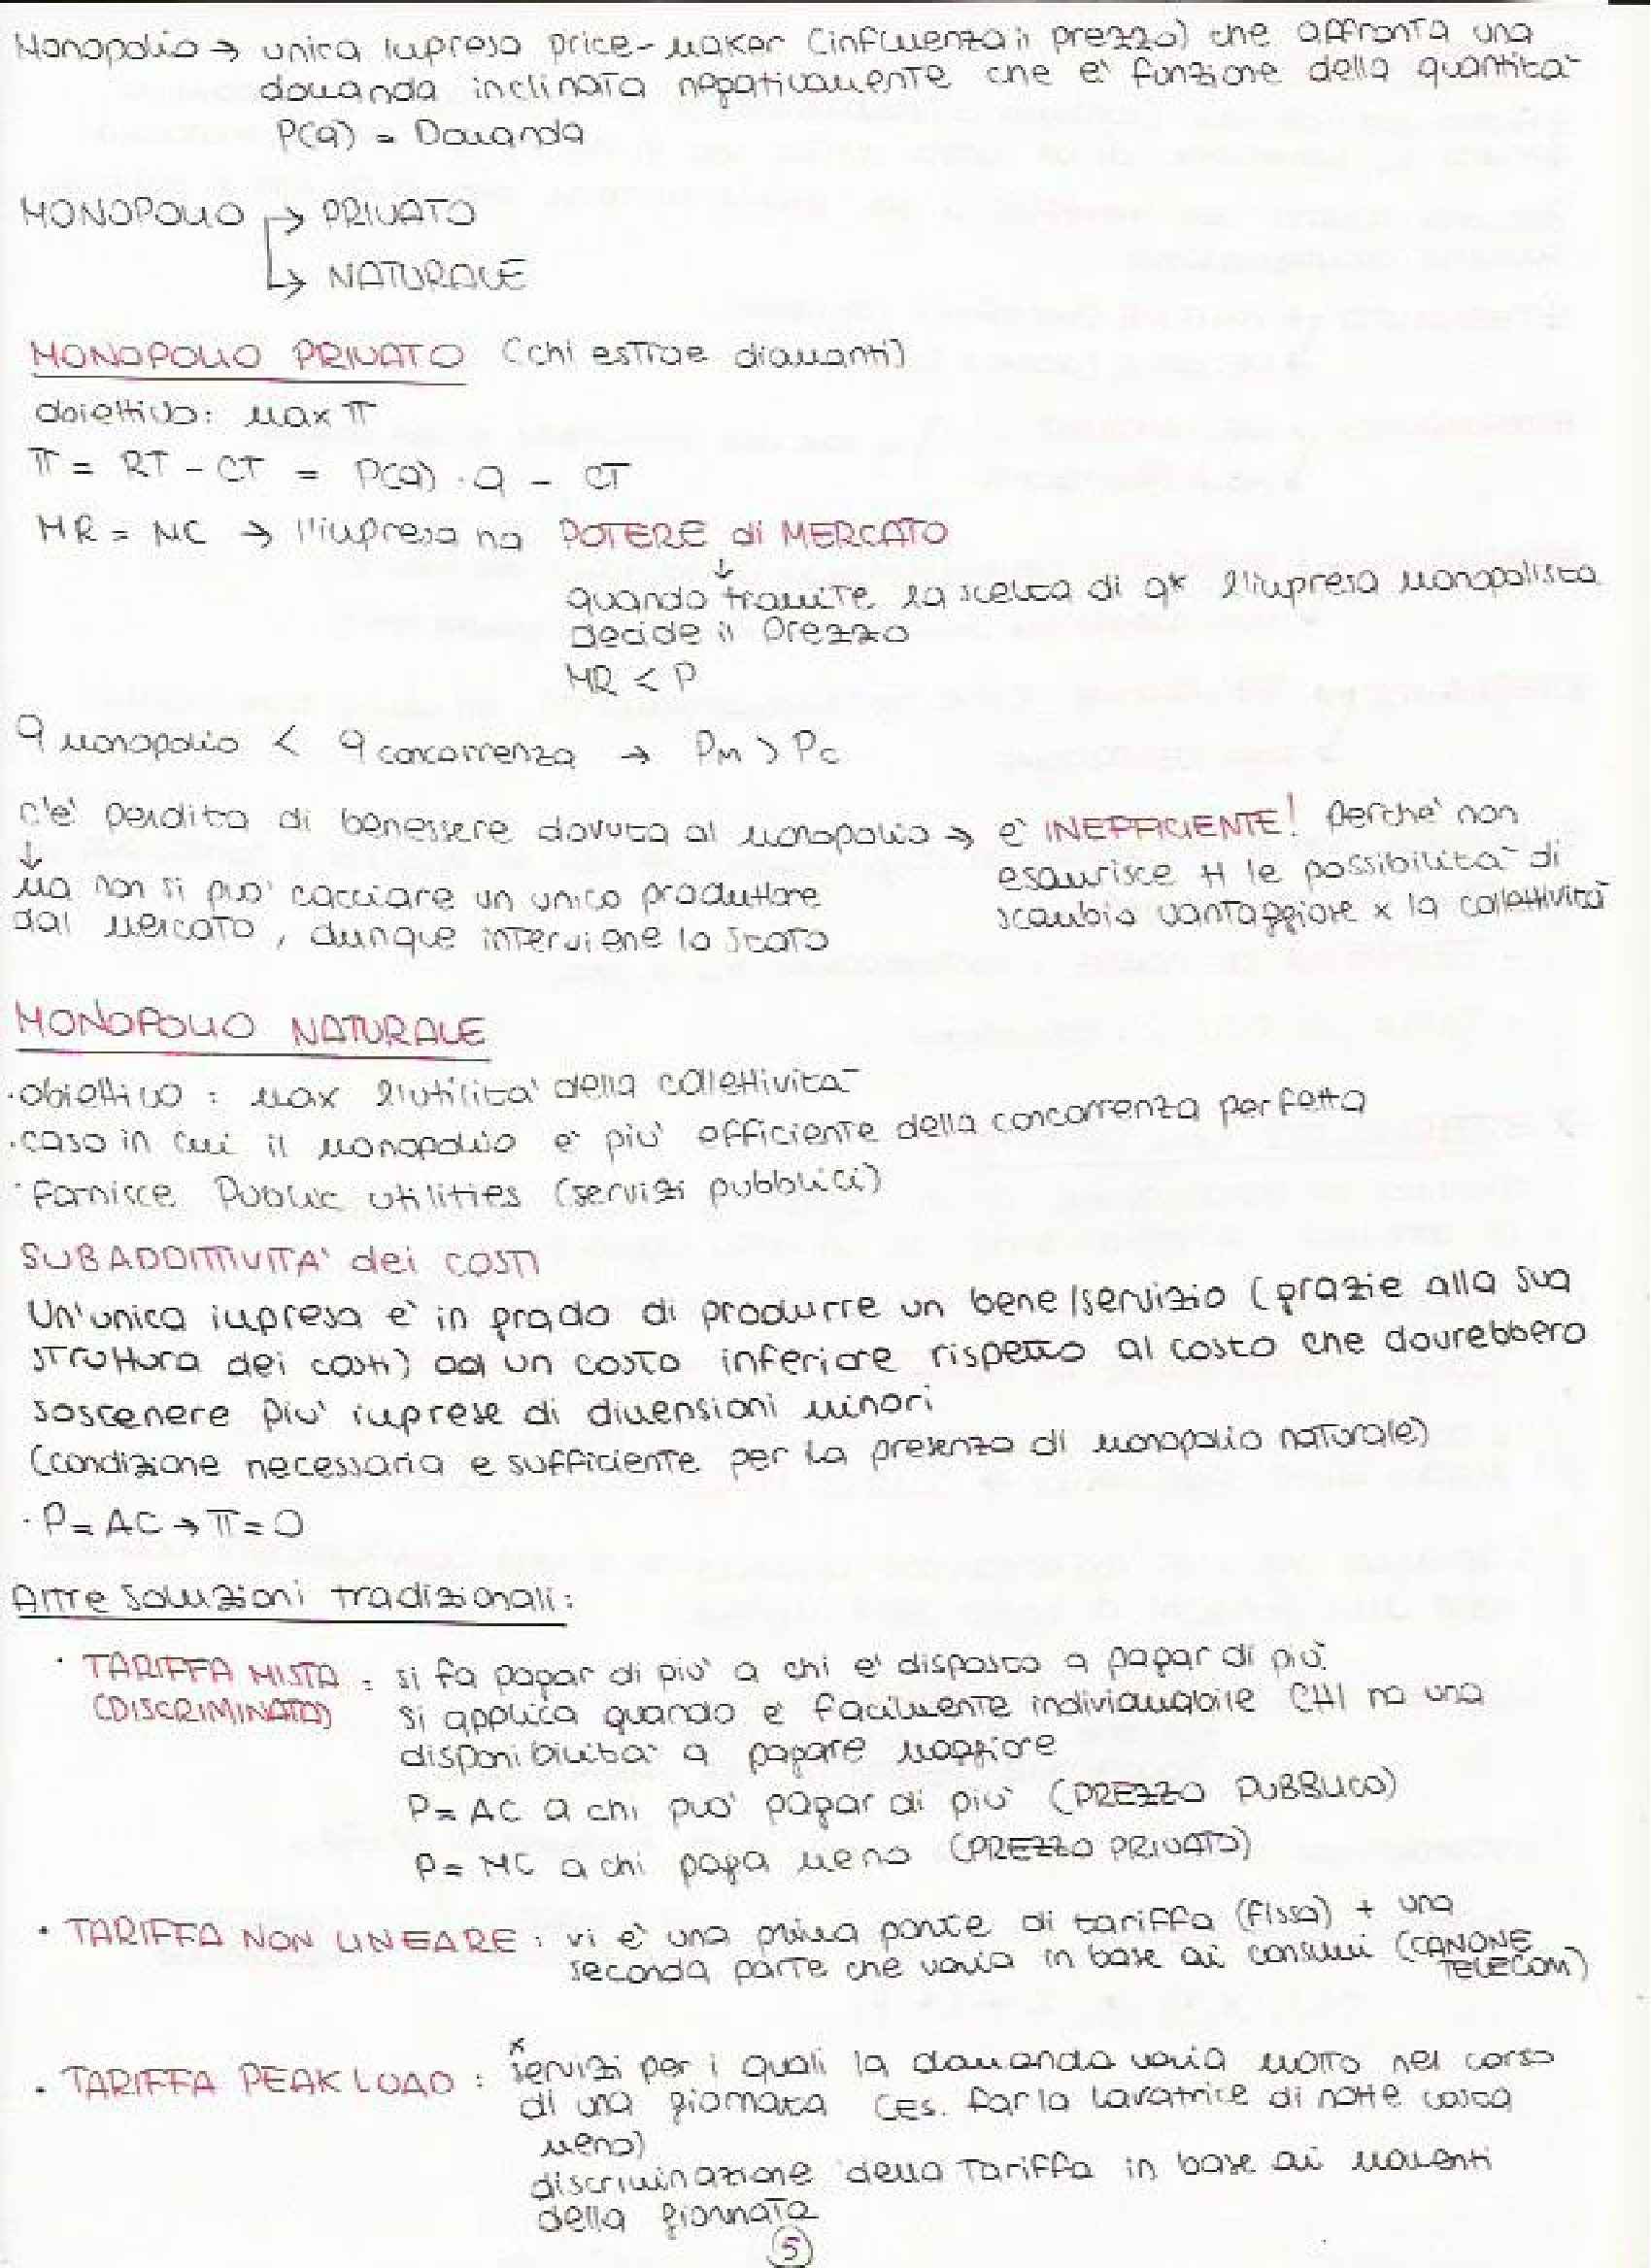 Monopolio → unica impresa price-maker (influenza il prezzo) che affronta una
domanda inclinata negativamente che e' funzione della quantità
P(q) = Domanda
MONOPOLIO → PRIVATO
→ NATURALE
MONOPOLIO PRIVATO (chi estrae diamanti)
obiettivo: max π
π = RT - CT = P(Q) · Q - CT
MR = MC → l'impresa ha POTERE di MERCATO
↓
quando tramite la scelta di q* l'impresa monopolista
decide il prezzo
MR < P
q monopolio < q concorrenza → Pm > Pc
c'e' perdita di benessere dovuta al monopolio → e' INEFFICIENTE! perche' non
esaurisce tt le possibilità di
scambio vantaggiose x la collettività
↓
ma non si puo' cacciare un unico produttore
dal mercato, dunque interviene lo stato
MONOPOLIO NATURALE
· obiettivo: max l'utilita' della collettività
· caso in cui il monopolio e' piu' efficiente della concorrenza perfetta
· fornisce Public utilities (servizi pubblici)
SUBADDITTIVITA' dei COSTI
Un'unica impresa e' in grado di produrre un bene/servizio (grazie alla sua
struttura dei costi) ad un costo inferiore rispetto al costo che dovrebbero
sostenere piu' imprese di dimensioni minori
(condizione necessaria e sufficiente per la presenza di monopolio naturale)
· P = AC → π = 0
Altre soluzioni tradizionali:
· TARIFFA MISTA : si fa pagar di piu' a chi e' disposto a pagar di piu'.
(DISCRIMINATA) Si applica quando e' facilmente individuabile CHI ha una
disponibilità a pagare maggiore
P = AC a chi puo' pagar di piu' (PREZZO PUBBLICO)
P = MC a chi paga meno (PREZZO PRIVATO)
· TARIFFA NON LINEARE : vi e' una prima parte di tariffa (fissa) + una
seconda parte che varia in base ai consumi (CANONE
TELECOM)
· TARIFFA PEAK LOAD : x servizi per i quali la domanda varia molto nel corso
di una giornata (es. far la lavatrice di notte costa
meno)
discriminazione della tariffa in base ai momenti
della giornata
5